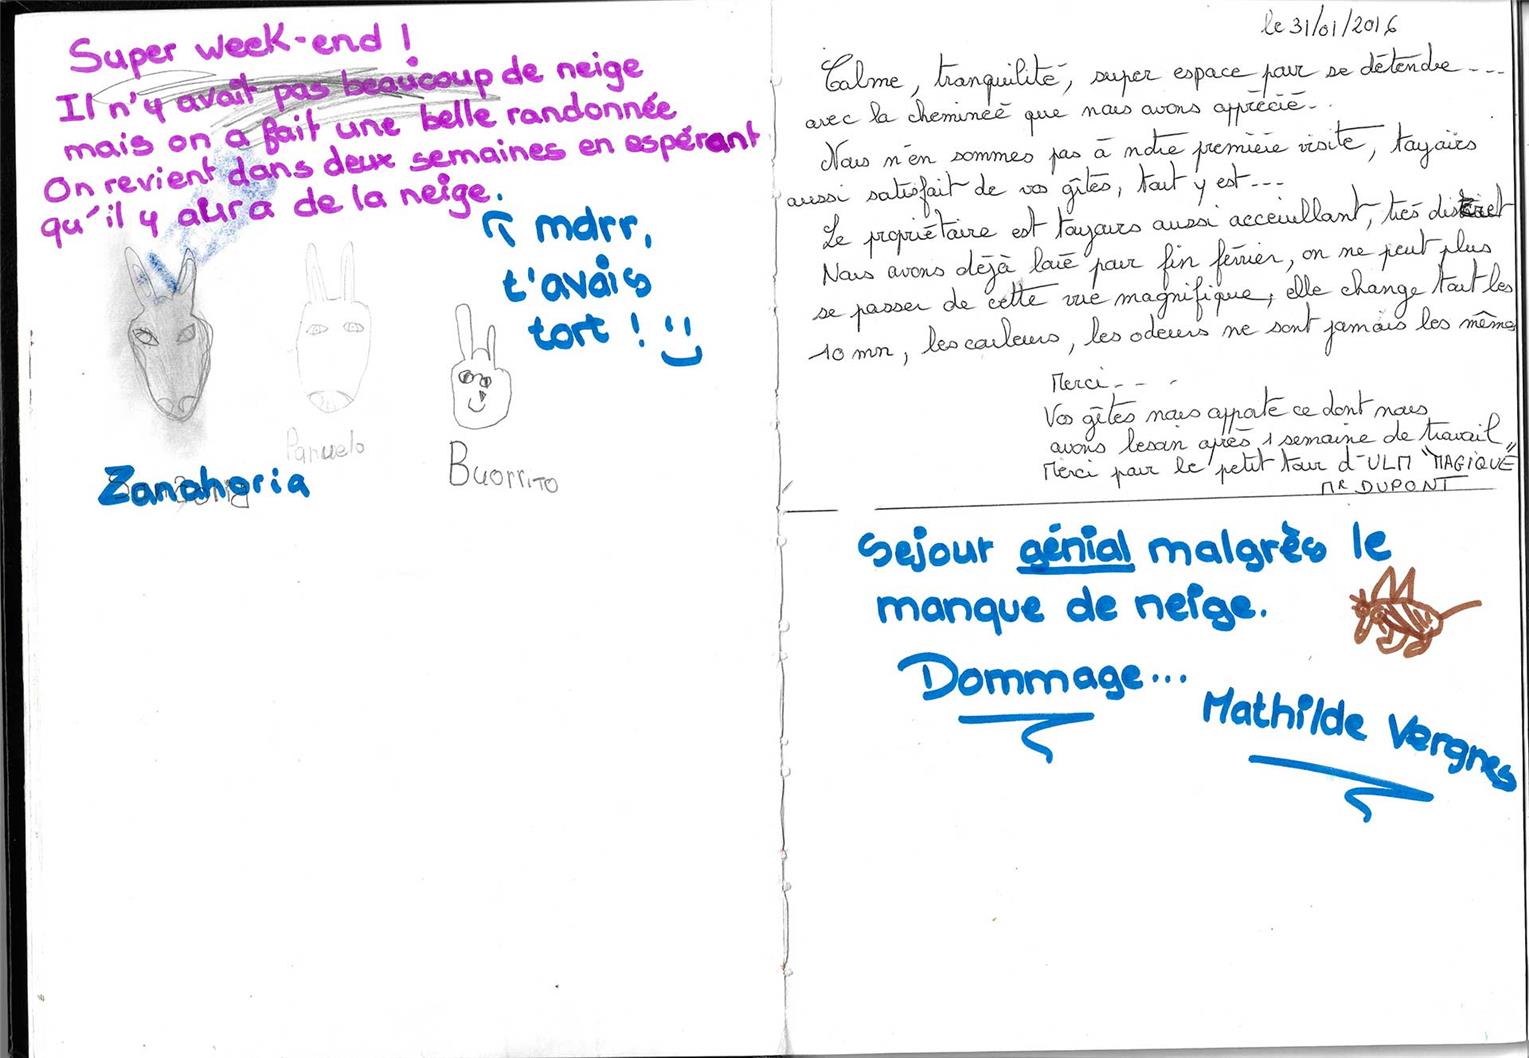 Super week-end !
Il n'y avait pas beaucoup de neige
mais on a fait une belle randonnée
On revient dans deux semaines en espérant
qu'il y aura de la neige.
mdrr,
t'avais
tort !
Panuelo
Buorrito
Zanahoria
le 31/01/2016
Calme, tranquilité, super espace pour se détendre ....
avec la cheminéé que nous avons apprécié..
Nous n'en sommes pas à notre première visite, toujours
aussi satisfait de vos gîtes, tout y est...
Le propriétaire est toujours aussi acceuillant, très discret
Nous avons déjà loué pour fin février, on ne peut plus
se passer de cette vue magnifique, elle change tout les
10 mn, les couleurs, les odeurs ne sont jamais les mêmes
Merci....
Vos gîtes nous apporte ce dont nous
avons besoin après 1 semaine de travail
Merci pour le petit tour d'ULM "MAGIQUE"
Mr DUPONT
Sejour génial malgrès le
manque de neige.
Dommage...
Mathilde Vergnes